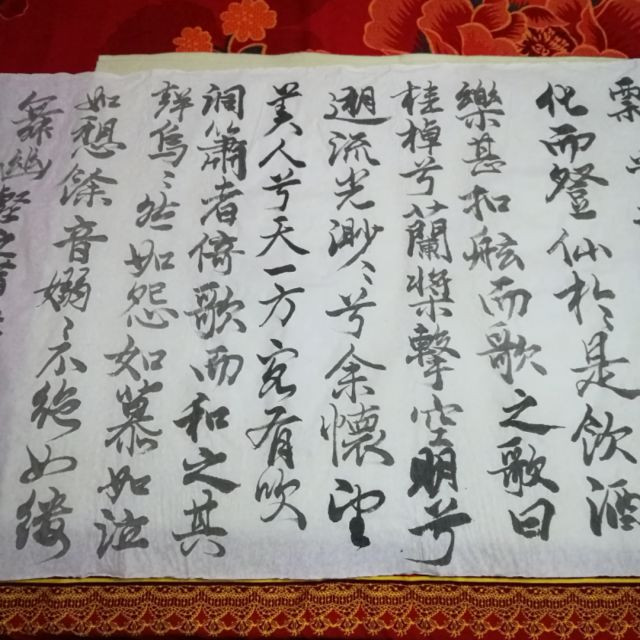 飄
化而登仙於是飲酒
樂甚扣舷而歌之歌曰
桂棹兮蘭槳擊空明兮
遡流光渺〻兮余懷望
美人兮天一方客有吹
洞簫者倚歌而和之其
聲嗚〻然如怨如慕如泣
如愬餘音嫋〻不絕如縷
舞幽壑之潛